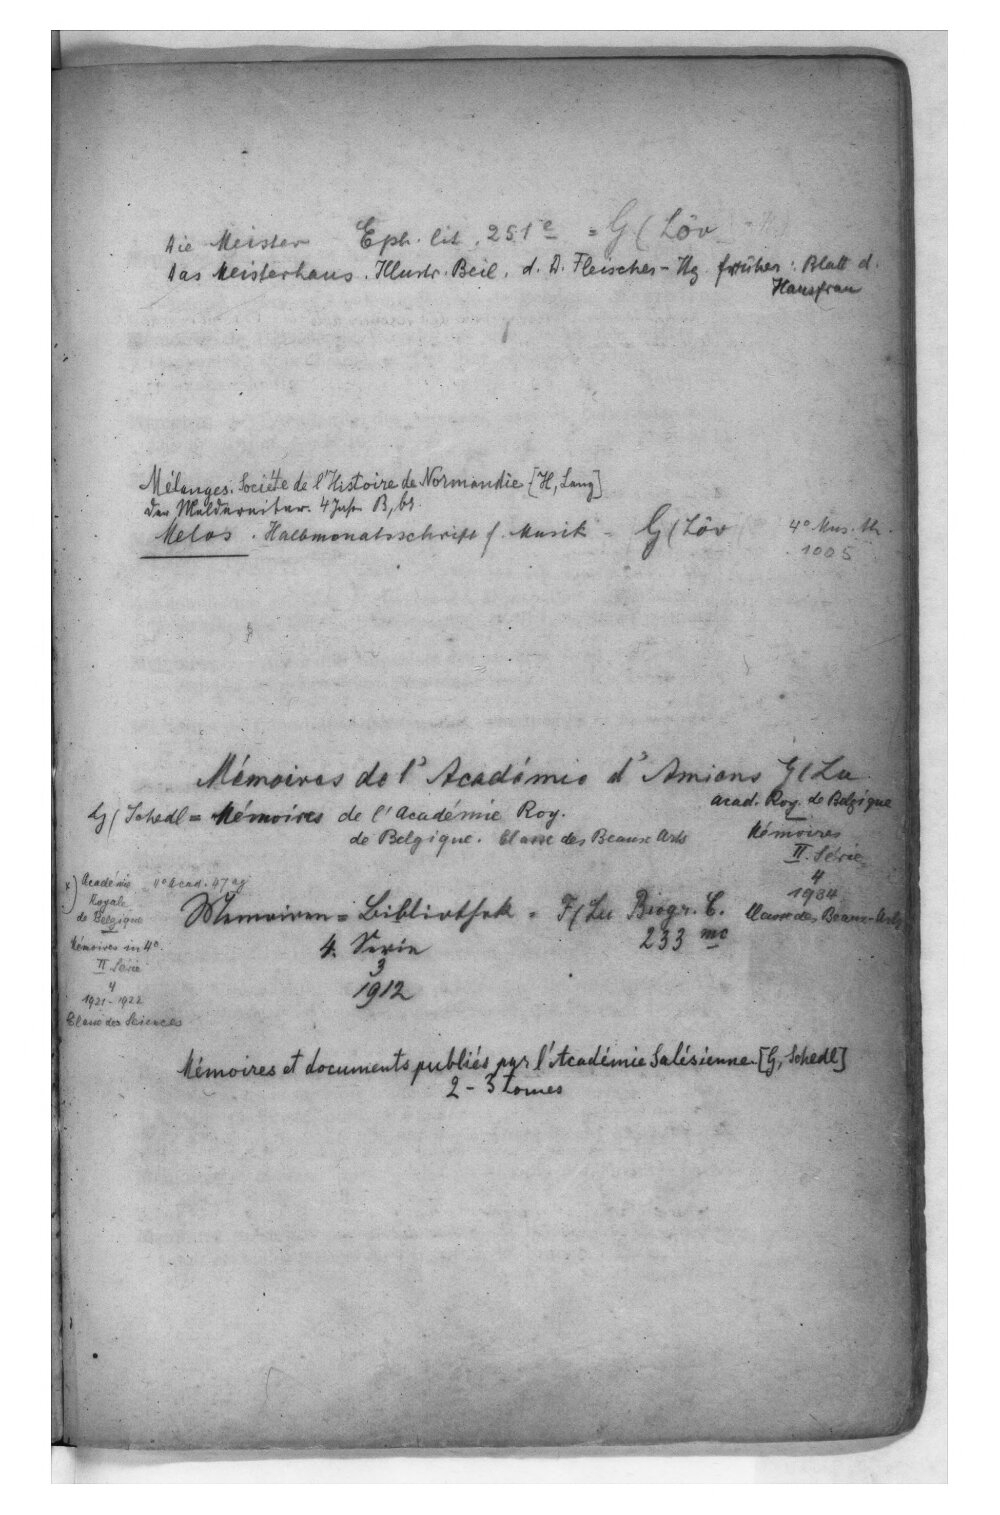 Die Meister Eph. lit. 251 e = G ( Löv
Das Meisterhaus. Illustr. Beil. d. D. Fleischer-Ztg. früher: Blatt d.
Hausfrau
Mélanges. Société de l'Histoire de Normandie [H, Lang]
Der 4 Jahr B, br.
Melos. Halbmonatsschrift f. Musik = G ( Löv 4° Mus. th.
1005
Mémoires de l'Académie d'Amiens G ( Lu
G ( Schedl = Mémoires de l'Académie Roy.
de Belgique. Classe des Beaux Arts
Acad. Roy. de Belgique
Mémoires
II. Série
4
1934
Classe des Beaux-Arts
x) Académie = 4° Acad. 47 ag
Royale
de Belgique
Mémoires in 4°.
II Série
4
1921-1922
Classe des Sciences
Memoiren = Bibliothek = F ( Lu Biogr. C.
233 mc
4. Serie
3
1912
Mémoires et documents publiés par l'Académie Salésienne. [G, Schedl]
2 - 3 Tomes